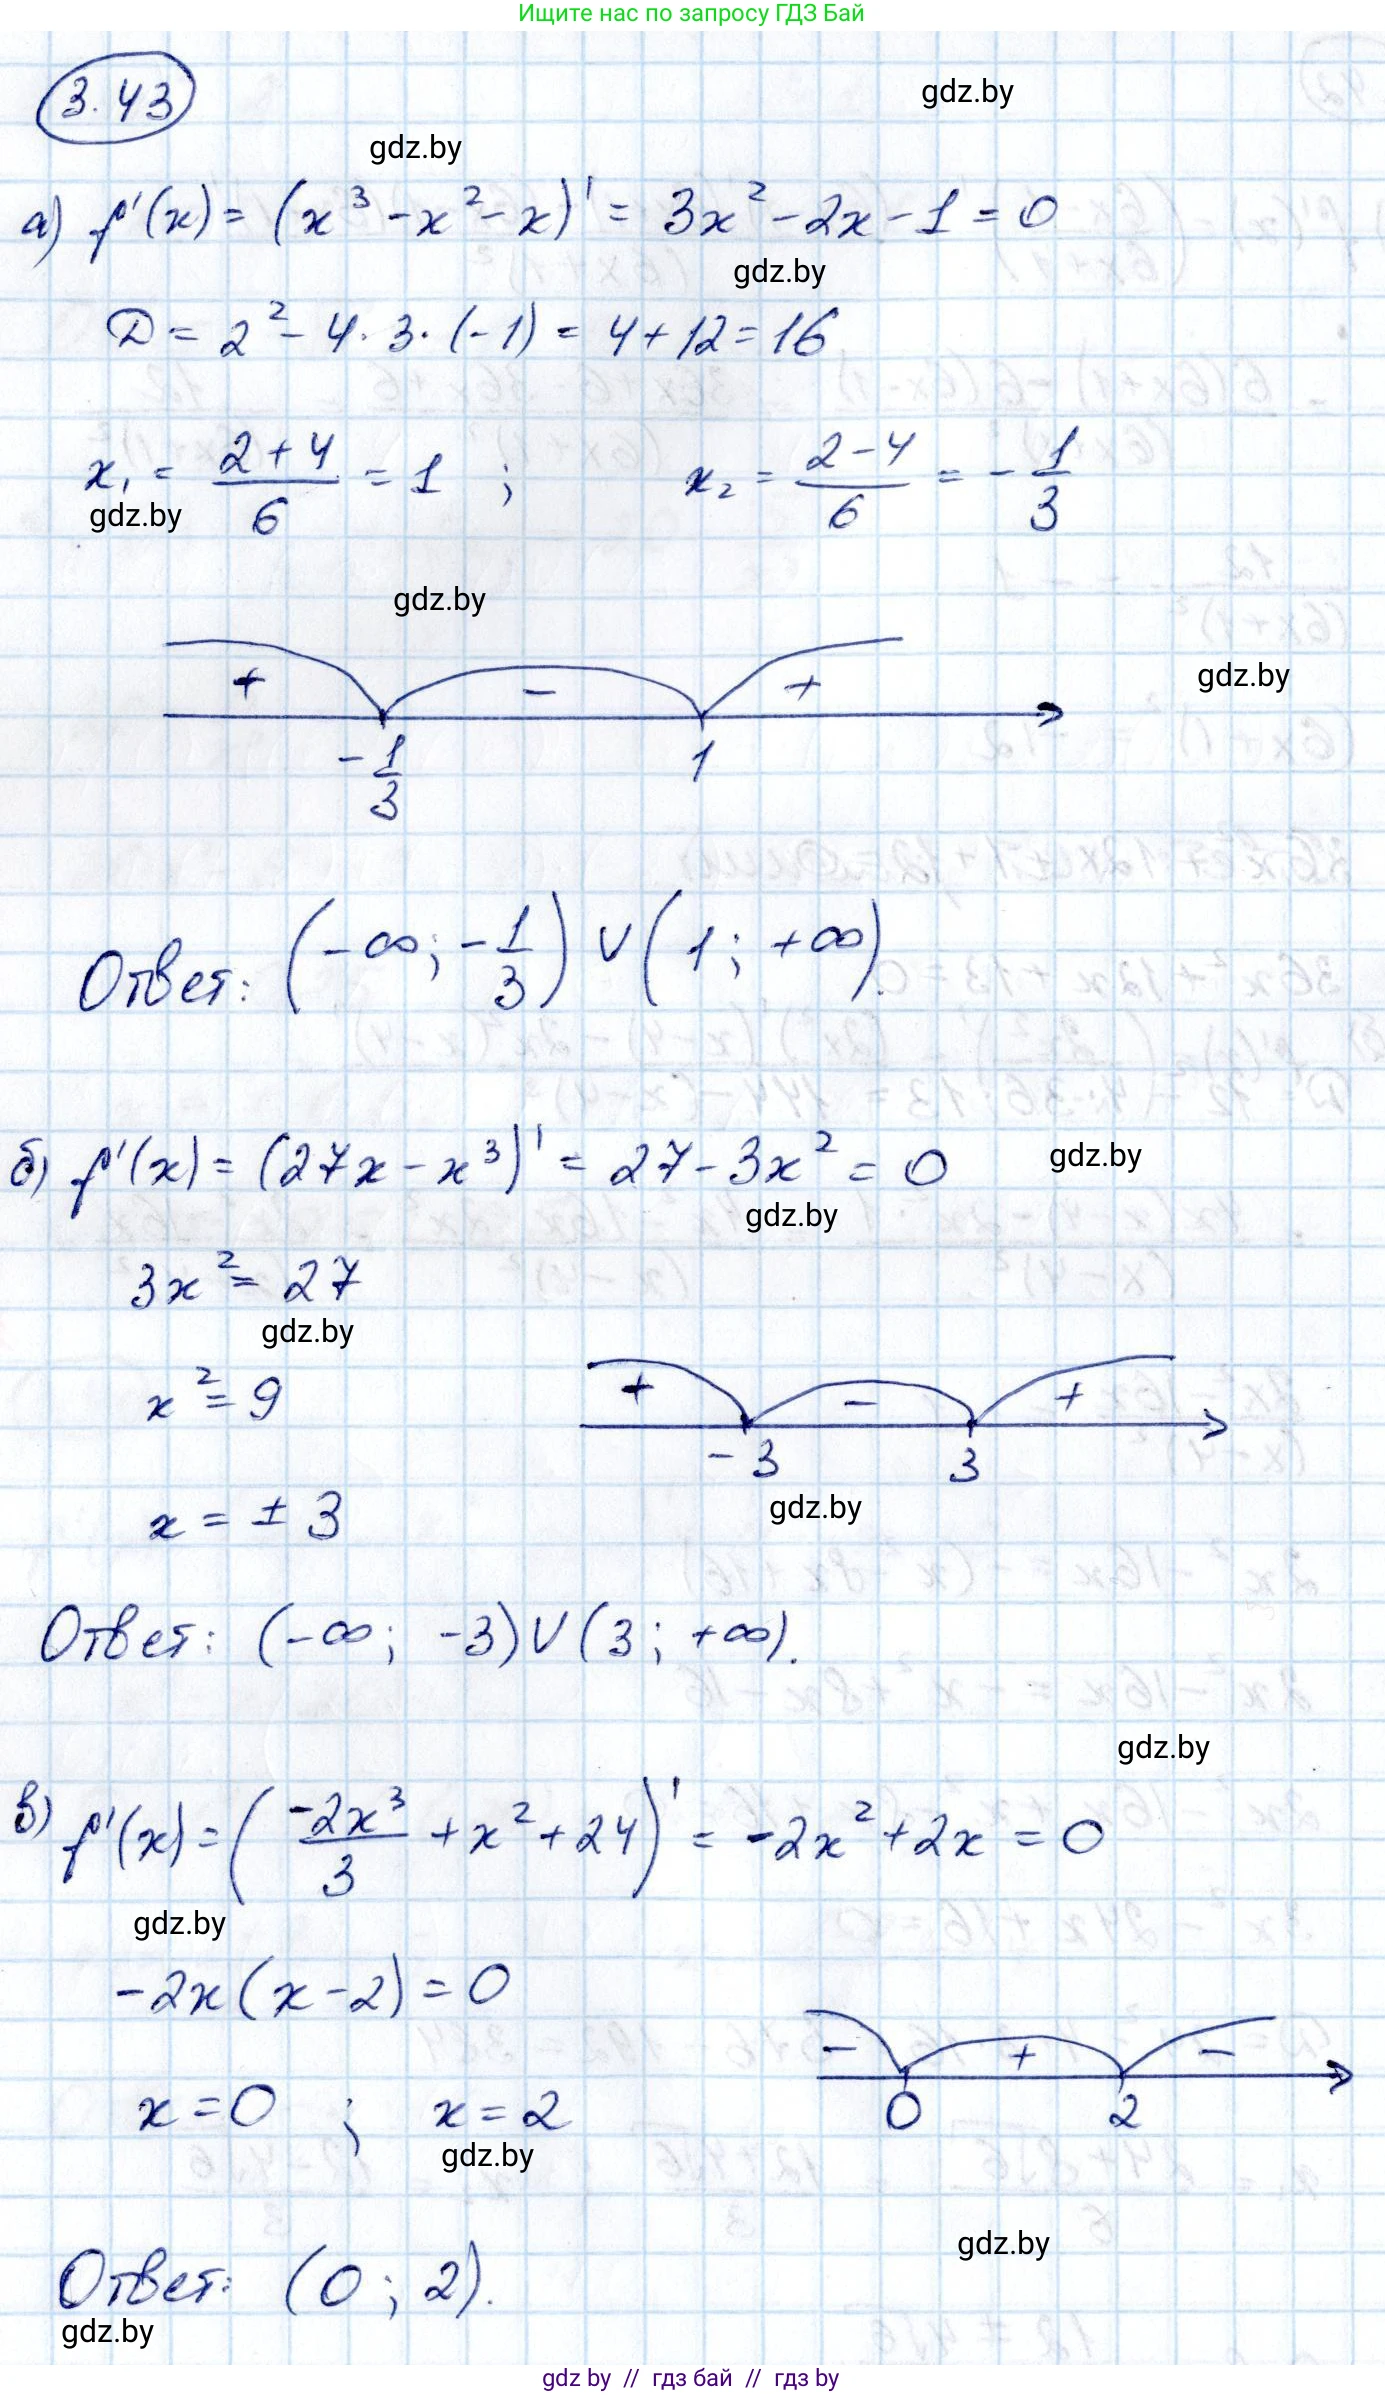 Ищите нас по запросу ГДЗ Бай
3.43
gdz.by
gdz.by
а) f'(x) = (x³ - x² - x)' = 3x² - 2x - 1 = 0
gdz.by
D = 2² - 4 · 3 · (-1) = 4 + 12 = 16
x₁ = (2 + 4)/6 = 1 ; x₂ = (2 - 4)/6 = - 1/3
gdz.by
gdz.by
+ - +
gdz.by
- 1/3 1
Ответ: (-∞; - 1/3) ∪ (1; +∞).
б) f'(x) = (27x - x³)' = 27 - 3x² = 0
gdz.by
gdz.by
3x² = 27
gdz.by
x² = 9
+ - +
- 3 3
gdz.by
x = ± 3
Ответ: (-∞; -3) ∪ (3; +∞).
gdz.by
в) f'(x) = (-2x³/3 + x² + 24)' = -2x² + 2x = 0
gdz.by
-2x(x - 2) = 0
- + -
0 2
x = 0 ; x = 2
gdz.by
gdz.by
Ответ: (0; 2).
gdz.by
gdz by // гдз бай // гдз by